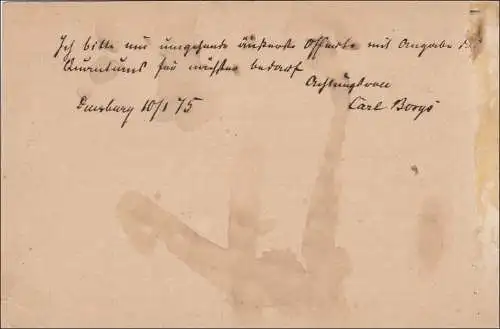 Ich bitte um umgehende äußerste Offerte mit Angabe des
Quantums für nächsten bedarf
Achtungsvoll
Duisburg 10/1 75 Carl Boogs